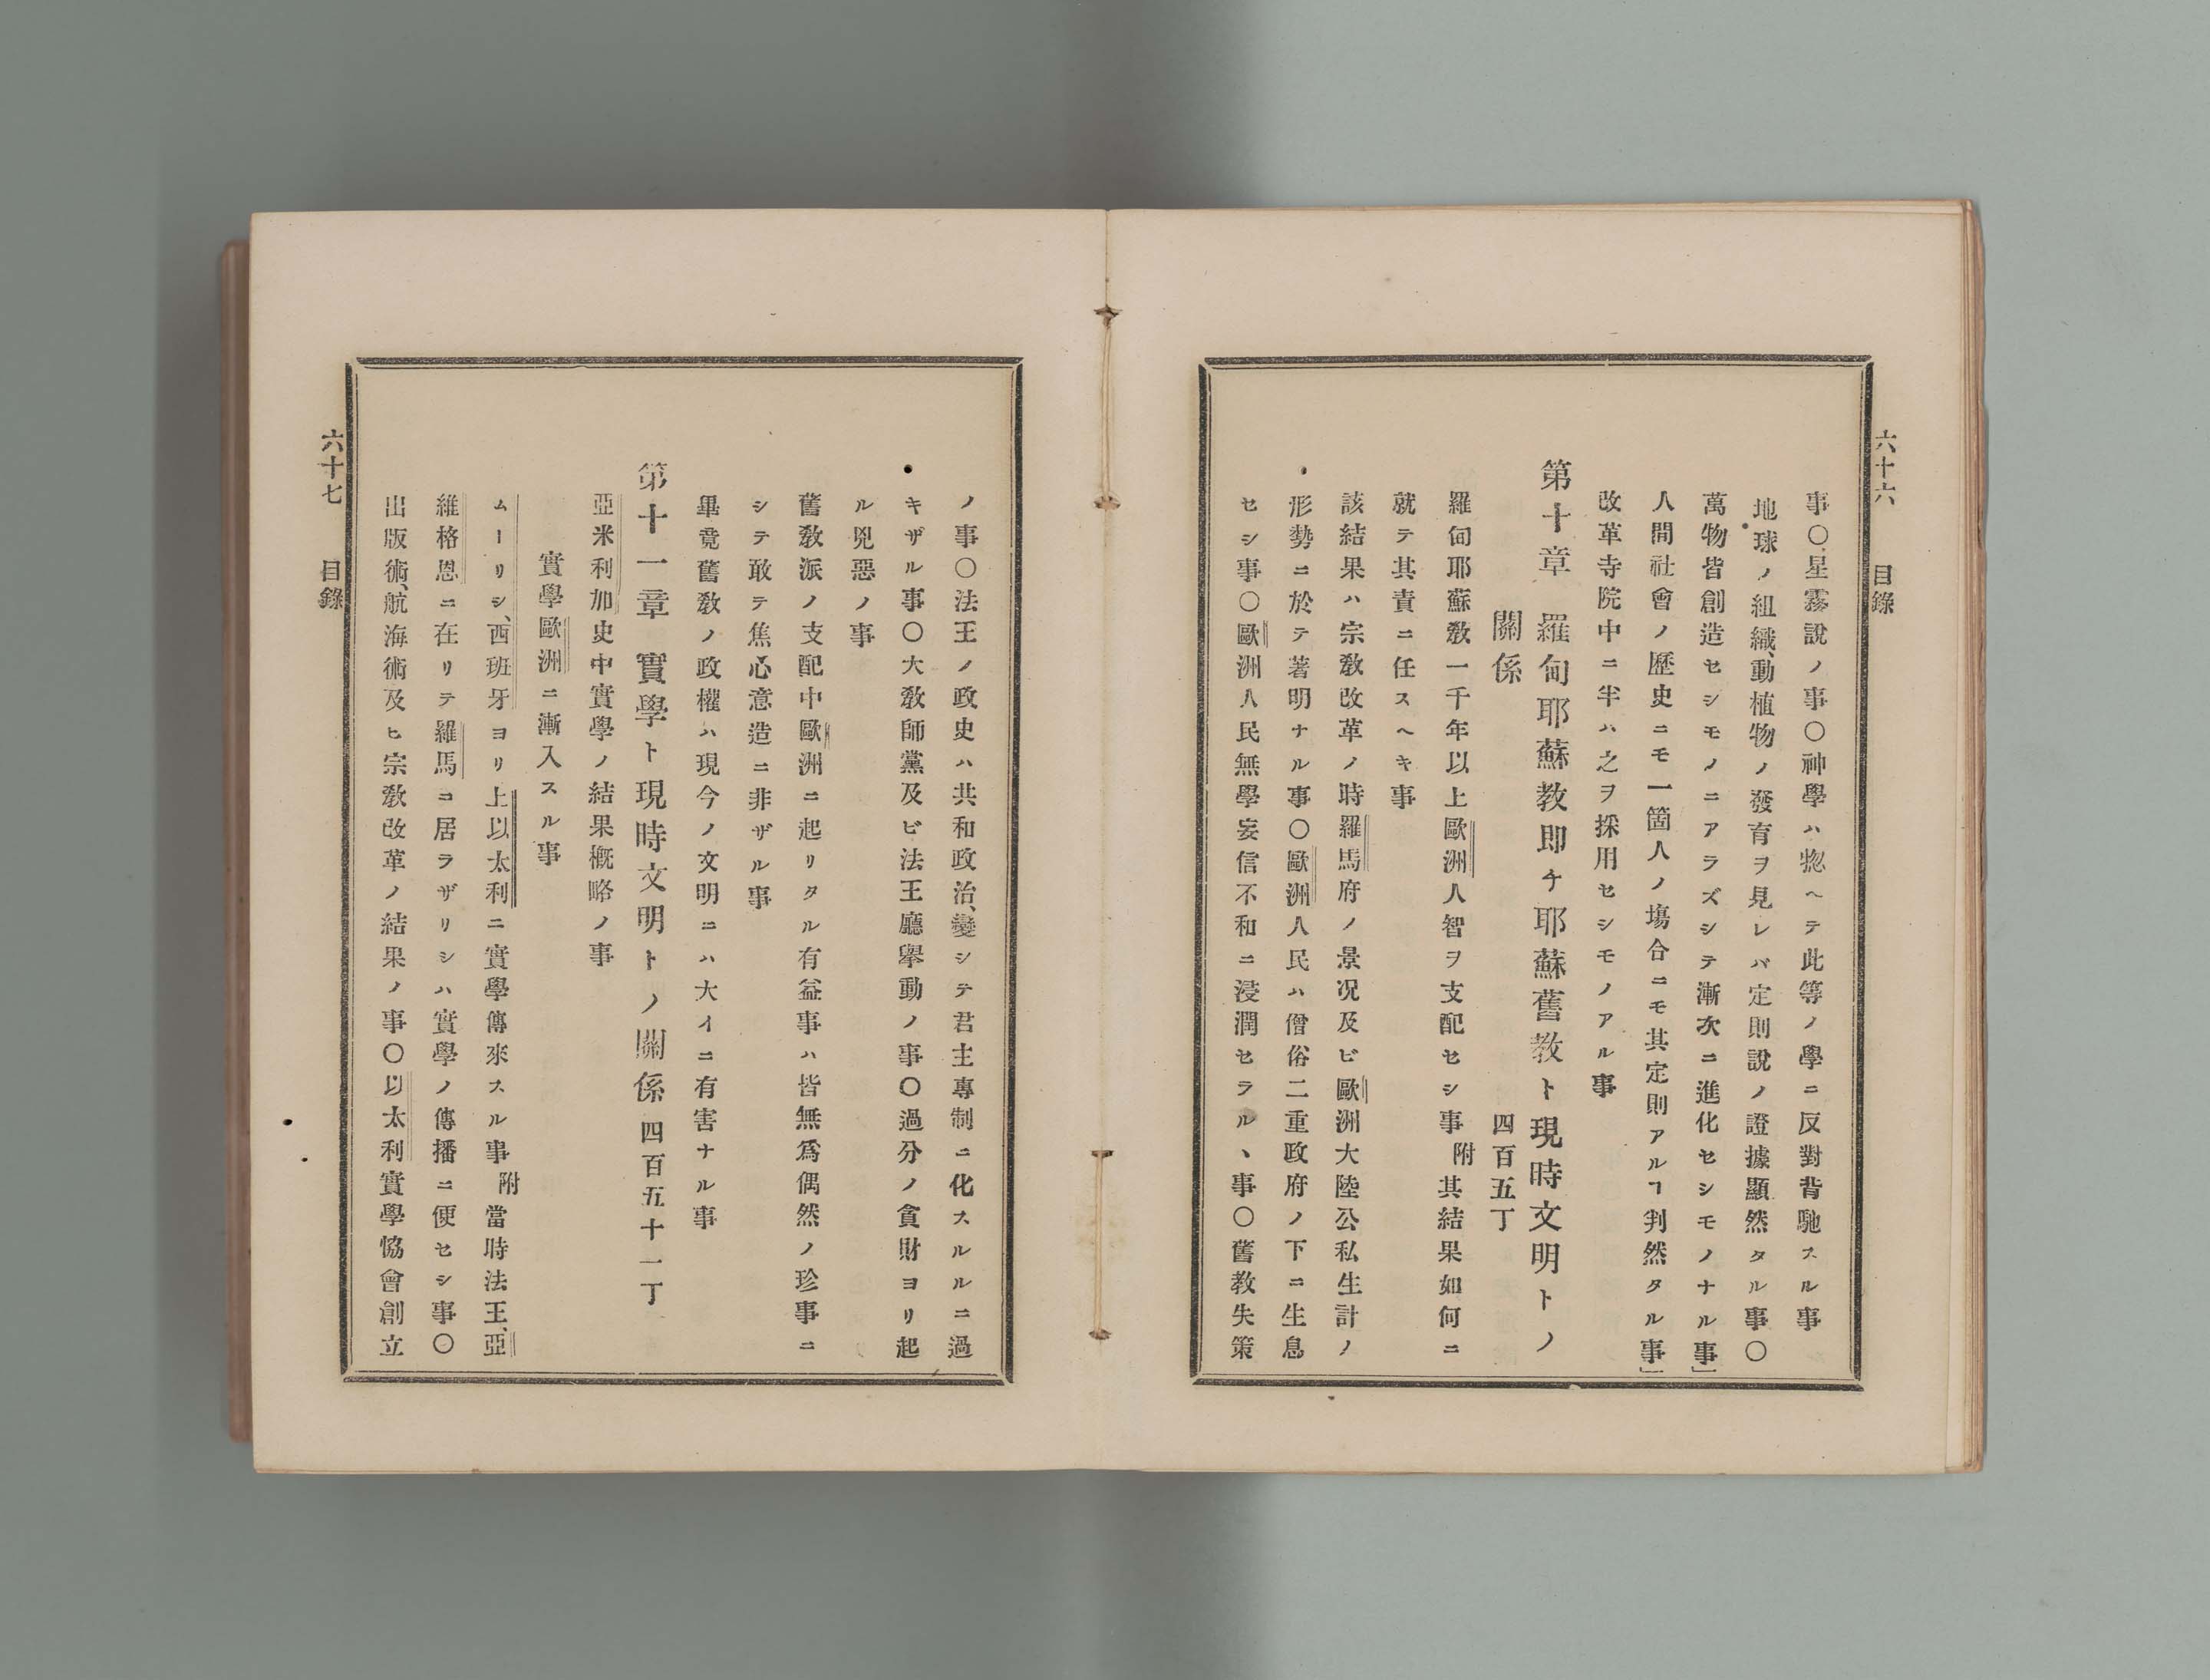 六十六　目錄
事〇星霧說ノ事〇神學ハ惣ヘテ此等ノ學ニ反對背馳スル事
地球ノ組織、動植物ノ發育ヲ見レバ定則說ノ證據顯然タル事〇
萬物皆創造セシモノニアラズシテ漸次ニ進化セシモノナル事」
人間社會ノ歷史ニモ一箇人ノ塲合ニモ其定則アルヿ判然タル事」
改革寺院中ニ半ハ之ヲ採用セシモノアル事
第十章　羅甸耶蘇教即チ耶蘇舊教ト現時文明トノ
關係　四百五丁
羅甸耶蘇敎一千年以上歐洲人智ヲ支配セシ事附其結果如何ニ
就テ其責ニ任スヘキ事
該結果ハ宗敎改革ノ時羅馬府ノ景况及ビ歐洲大陸公私生計ノ
形勢ニ於テ著明ナル事〇歐洲人民ハ僧俗二重政府ノ下ニ生息
セシ事〇歐洲人民無學妄信不和ニ浸潤セラルヽ事〇舊教失策
ノ事〇法王ノ政史ハ共和政治、變シテ君主專制ニ化スルルニ過
キザル事〇大敎師黨及ビ法王廳擧動ノ事〇過分ノ貪財ヨリ起
ル兇惡ノ事
舊敎派ノ支配中歐洲ニ起リタル有益事ハ皆無爲偶然ノ珍事ニ
シテ敢テ焦心意造ニ非ザル事
畢竟舊敎ノ政權ハ現今ノ文明ニハ大イニ有害ナル事
第十一章　實學ト現時文明トノ關係　四百五十一丁
亞米利加史中實學ノ結果概略ノ事
實學歐洲ニ漸入スル事
ムーリシ、西班牙ヨリ上以太利ニ實學傳來スル事附當時法王、亞
維格恩ニ在リテ羅馬ニ居ラザリシハ實學ノ傳播ニ便セシ事〇
出版術、航海術及ヒ宗敎改革ノ結果ノ事〇以太利實學恊會創立
六十七　目錄